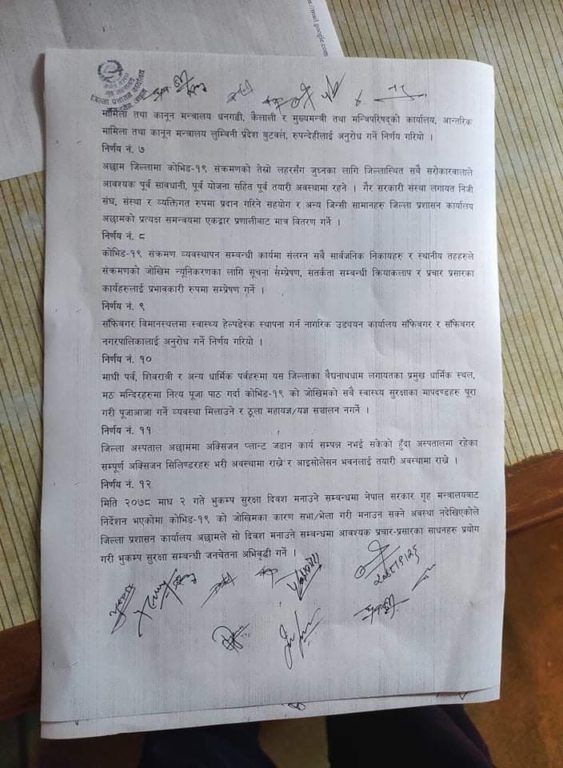 https://mail.google.com
जिल्ला प्रशासन कार्यालय
मामिला तथा कानून मन्त्रालय धनगढी, कैलाली र मुख्यमन्त्री तथा मन्त्रिपरिषद्को कार्यालय, आन्तरिक
मामिला तथा कानून मन्त्रालय लुम्बिनी प्रदेश बुटवल, रुपन्देहीलाई अनुरोध गर्ने निर्णय गरियो ।
निर्णय नं. ७
अछाम जिल्लामा कोभिड-१९ संक्रमणको तेस्रो लहरसँग जुध्नका लागि जिल्लास्थित सबै सरोकारवालाले
आवश्यक पूर्व सावधानी, पूर्व योजना सहित पूर्व तयारी अवस्थामा रहने । गैर सरकारी संस्था लगायत निजी
संघ, संस्था र व्यक्तिगत रुपमा प्रदान गरिने सहयोग र अन्य जिन्सी सामानहरु जिल्ला प्रशासन कार्यालय
अछामको प्रत्यक्ष समन्वयमा एकद्वार प्रणालीबाट मात्र वितरण गर्ने ।
निर्णय नं. ८
कोभिड-१९ संक्रमण व्यवस्थापन सम्बन्धी कार्यमा संलग्न सबै सार्वजनिक निकायहरु र स्थानीय तहहरुले
संक्रमणको जोखिम न्यूनिकरणका लागि सूचना सम्प्रेषण, सतर्कता सम्बन्धी क्रियाकलाप र प्रचार प्रसारका
कार्यहरुलाई प्रभावकारी रुपमा सम्प्रेषण गर्ने ।
निर्णय नं. ९
साँफेबगर विमानस्थलमा स्वास्थ्य हेल्पडेस्क स्थापना गर्न नागरिक उड्डयन कार्यालय साँफेबगर र साँफेबगर
नगरपालिकालाई अनुरोध गर्ने निर्णय गरियो ।
निर्णय नं. १०
माघी पर्व, शिवरात्री र अन्य धार्मिक पर्वहरुमा यस जिल्लाका बैद्यनाथधाम लगायतका प्रमुख धार्मिक स्थल,
मठ मन्दिरहरुमा नित्य पूजा पाठ गर्दा कोभिड-१९ को जोखिमको सबै स्वास्थ्य सुरक्षाका मापदण्डहरु पूरा
गरी पूजाआजा गर्ने व्यवस्था मिलाउने र ठूला महायज्ञ/यज्ञ संचालन नगर्ने ।
निर्णय नं. ११
जिल्ला अस्पताल अछाममा अक्सिजन प्लान्ट जडान कार्य सम्पन्न नभई सकेको हुँदा अस्पतालमा रहेका
सम्पूर्ण अक्सिजन सिलिण्डरहरु भरी अवस्थामा राख्ने र आइसोलेसन भवनलाई तयारी अवस्थामा राख्ने ।
निर्णय नं. १२
मिति २०७८ माघ २ गते भुकम्प सुरक्षा दिवश मनाउने सम्बन्धमा नेपाल सरकार गृह मन्त्रालयबाट
निर्देशन भएकोमा कोभिड-१९ को जोखिमका कारण सभा/भेला गरी मनाउन सक्ने अवस्था नदेखिएकोले
जिल्ला प्रशासन कार्यालय अछामले सो दिवश मनाउने सम्बन्धमा आवश्यक प्रचार-प्रसारका साधनहरु प्रयोग
गरी भुकम्प सुरक्षा सम्बन्धी जनचेतना अभिबृद्धी गर्ने ।